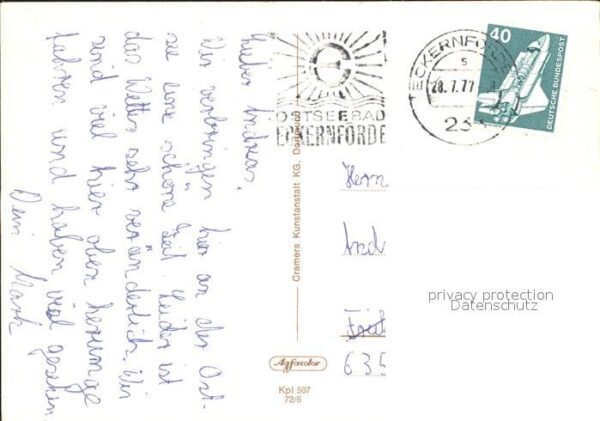 Lieber Andreas.
Wir verbringen hier an der Ost-
see eine schöne Zeit. Leider ist
das Wetter sehr veränderlich. Wir
sind viel hier oben herumge
fahren und haben viel gesehen.
Dein Mark
OSTSEEBAD
ECKERNFÖRDE
ECKERNFÖRDE
s
28.7.77
40
DEUTSCHE BUNDESPOST
Cramers Kunstanstalt KG, Dortmund
Herrn
635
privacy protection
Datenschutz
Agfacolor
Kpl 507
72/6